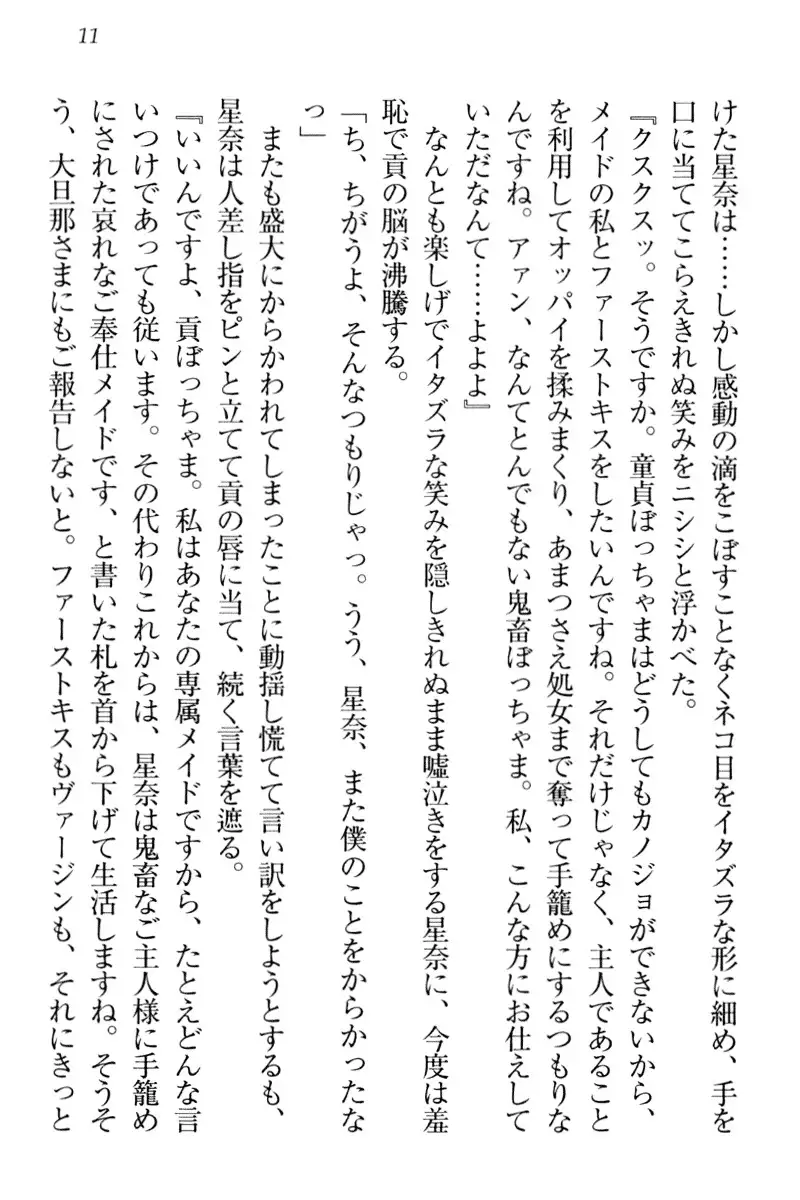 11
けた星奈は……しかし感動の滴をこぼすことなくネコ目をイタズラな形に細め、手を
口に当ててこらえきれぬ笑みをニシシと浮かべた。
『クスクスッ。そうですか。童貞ぼっちゃまはどうしてもカノジョができないから、
メイドの私とファーストキスをしたいんですね。それだけじゃなく、主人であること
を利用してオッパイを揉みまくり、あまつさえ処女まで奪って手籠めにするつもりな
んですね。アァン、なんてとんでもない鬼畜ぼっちゃま。私、こんな方にお仕えして
いただなんて……よよよ』
なんとも楽しげでイタズラな笑みを隠しきれぬまま嘘泣きをする星奈に、今度は羞
恥で貢の脳が沸騰する。
「ち、ちがうよ、そんなつもりじゃっ。うう、星奈、また僕のことをからかったな
っ」
またも盛大にからかわれてしまったことに動揺し慌てて言い訳をしようとするも、
星奈は人差し指をピンと立てて貢の唇に当て、続く言葉を遮る。
『いいんですよ、貢ぼっちゃま。私はあなたの専属メイドですから、たとえどんな言
いつけであっても従います。その代わりこれからは、星奈は鬼畜なご主人様に手籠め
にされた哀れなご奉仕メイドです、と書いた札を首から下げて生活しますね。そうそ
う、大旦那さまにもご報告しないと。ファーストキスもヴァージンも、それにきっと